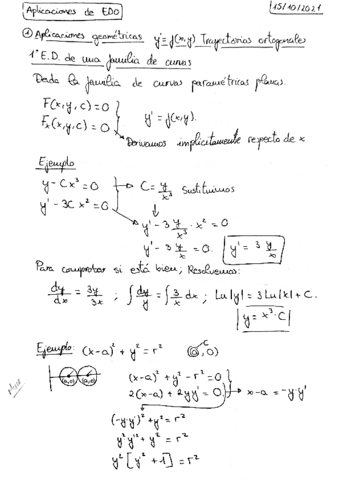 Aplicaciones de EDO
15/10/2021
① Aplicaciones geométricas y'=f(x,y) Trayectorias ortogonales
1º E.D. de una familia de curvas
Dada la familia de curvas paramétricas planas.
F(x,y,c)=0
Fx(x,y,c)=0
y'=f(x,y).
Derivamos implícitamente respecto de x
Ejemplo
y-Cx³=0 → C=y/x³ sustituimos
y'-3Cx²=0
y'-3 y/x³ · x²=0
y'-3 y/x=0. y'=3 y/x
Para comprobar si está bien; Resolvemos:
dy/dx = 3y/3x ; ∫dy/y = ∫3/x dx ; Ln|y|=3Ln|x|+C.
y=x³·C
Ejemplo: (x-a)²+y²=r²
(a,0)
(a,0) (a,0)
(x-a)²+y²-r²=0
2(x-a)+2yy'=0 → x-a=-y·y'
(-y·y')²+y²=r²
y²y'²+y²=r²
y²[y'²+1]=r²